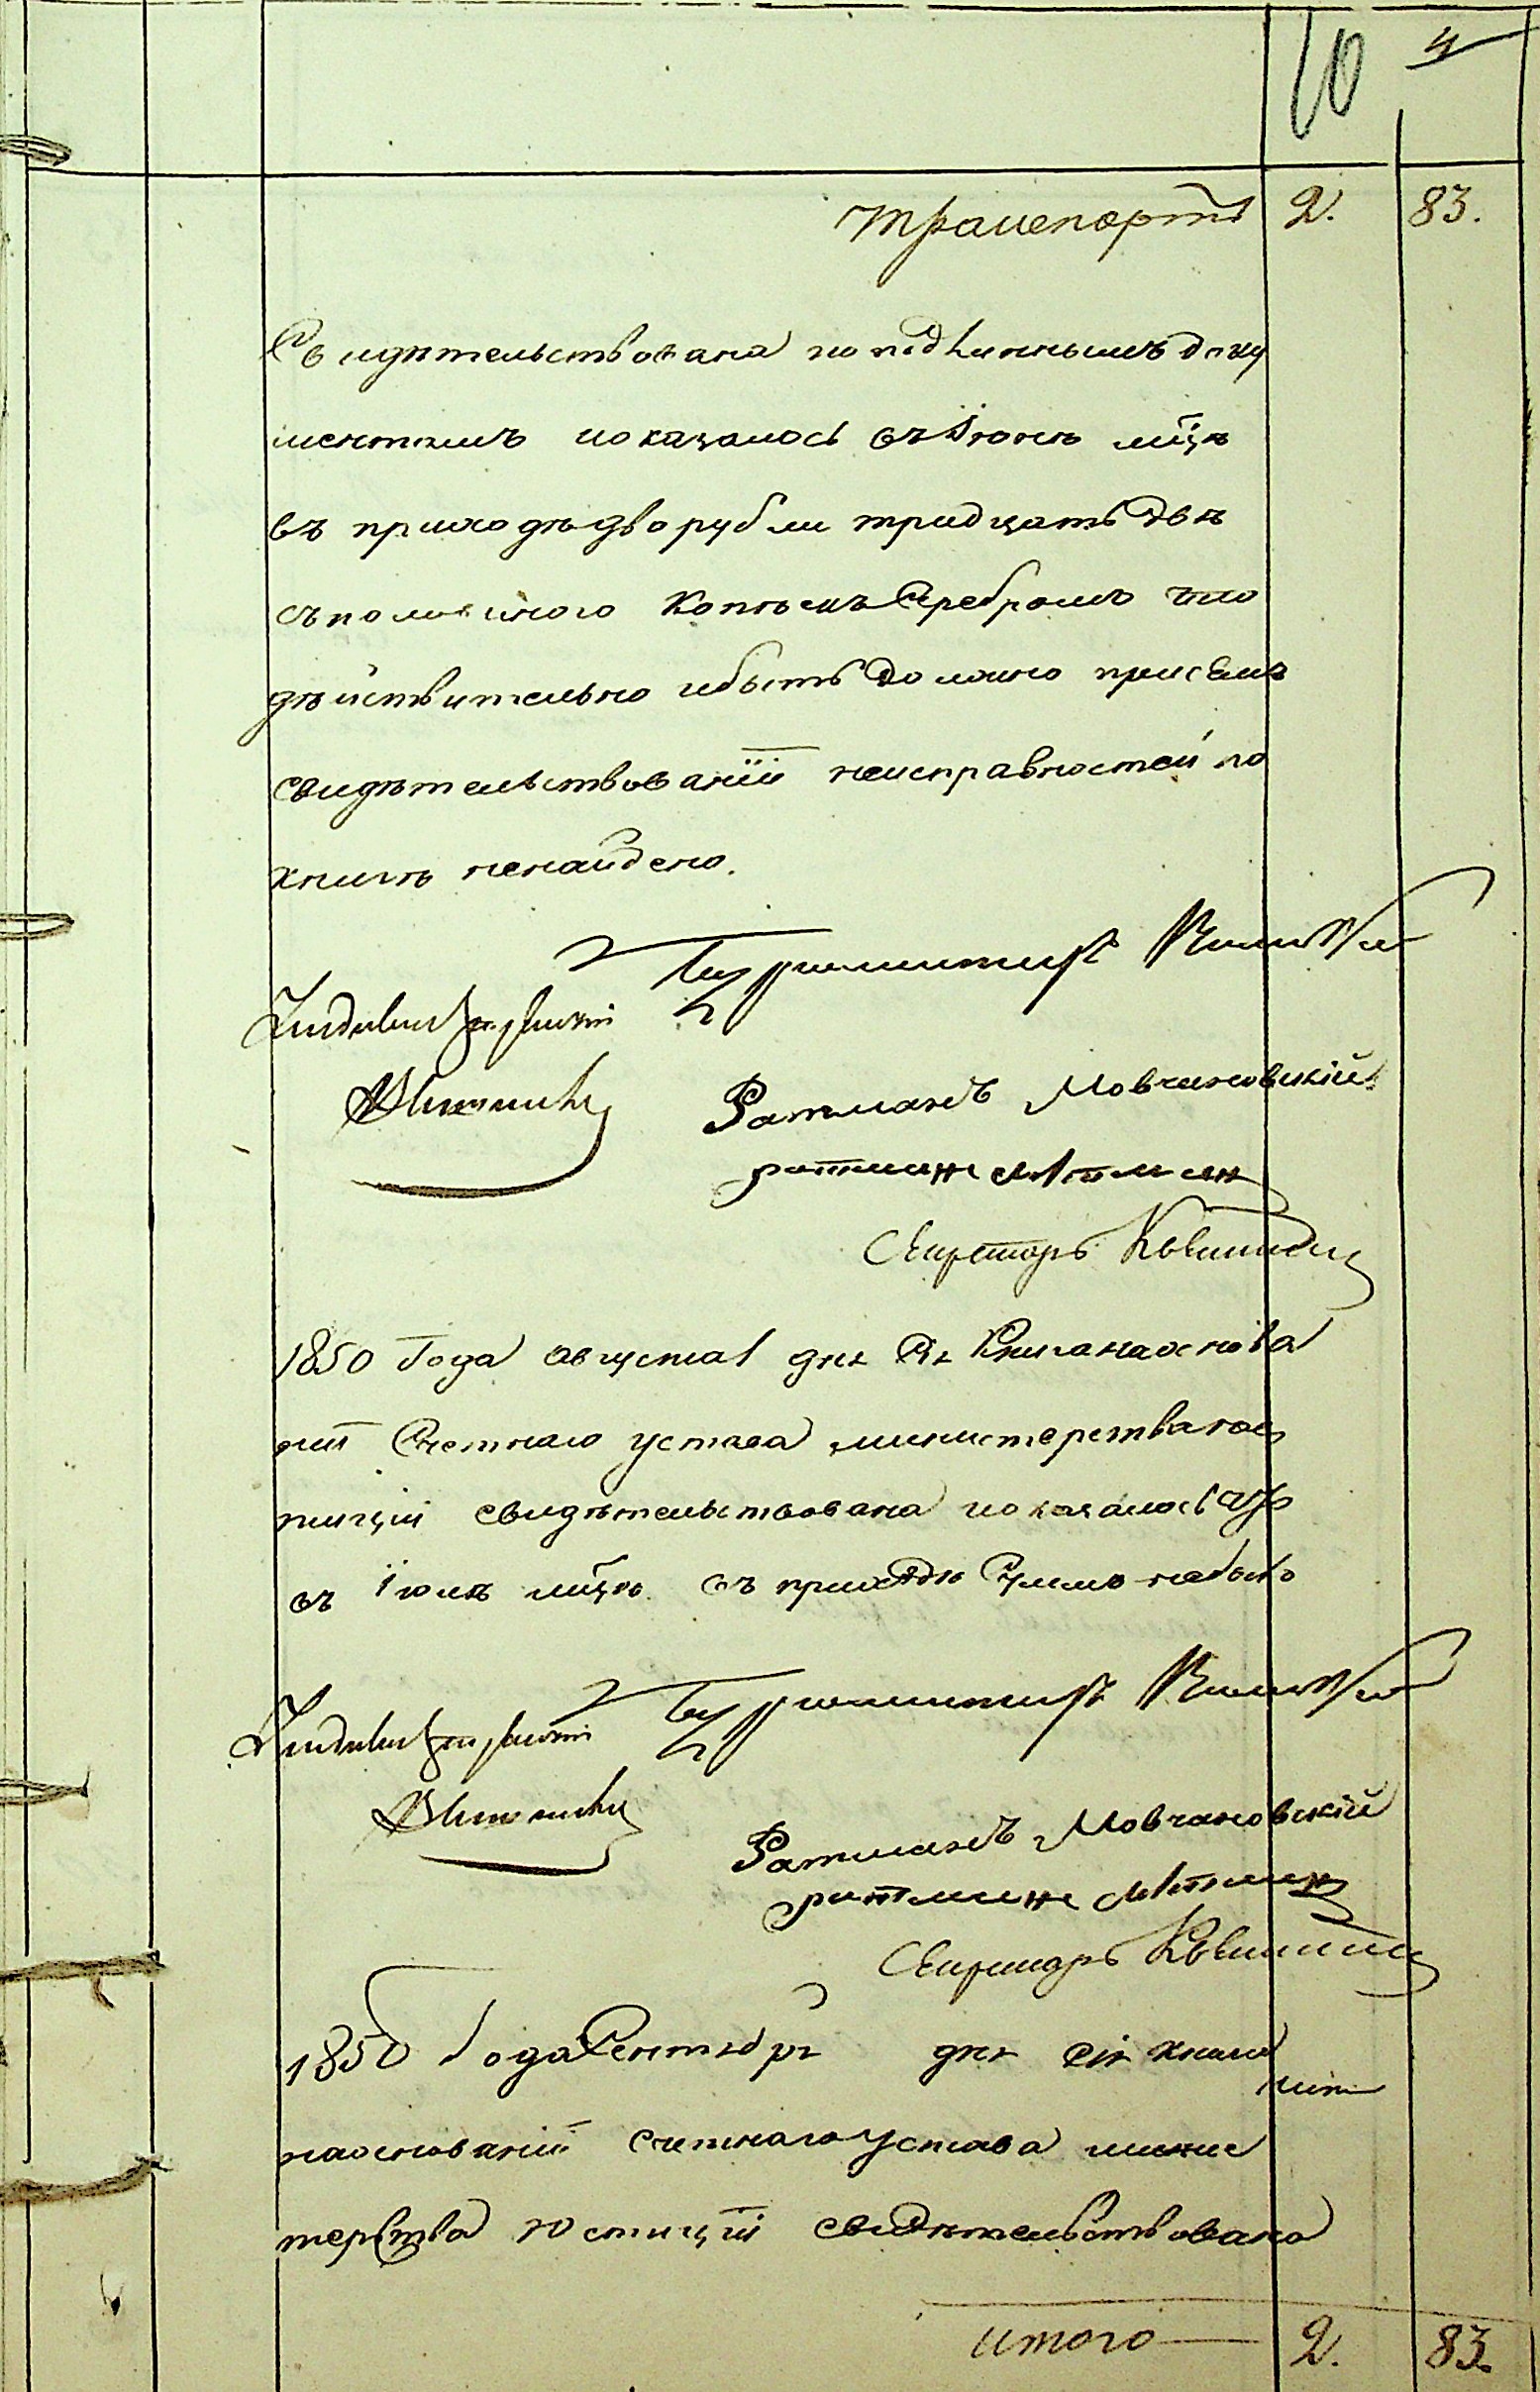 10 4
транспортъ 2. 83.
Свидѣтельствована по подлиннымъ доку
ментамъ и оказалось въ Іюнѣ мцѣ
въ приходѣ два рубли тридцать двѣ
съ половиною копѣекъ Серебромъ что
дѣйствительно и быть должно при семъ
свидѣтельствованіи неисправностей по
книгѣ ненайдено.
Бургомистръ
Ратманъ Мовчановскій
ратманъ
Секретарь
1850 Года августа 1 дня Сія Книга на основа
ніи Счетнаго устава министерства юс
тиціи свидѣтельствована и оказалось что
въ Іюлѣ мцѣ въ приходѣ Суммъ небыло
Бургомистръ
Ратманъ Мовчановскій
ратманъ
Секретарь
1850 Года Сентября дня сія книга
на основаніи счетнаго Устава минис
терства Юстиціи свидѣтельствована
итого 2. 83.